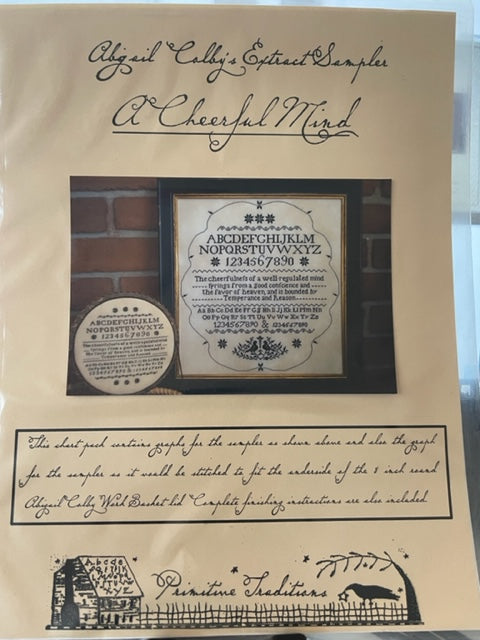 Abigail Colby's Extract Sampler
A Cheerful Mind
ABCDEFGHIJKLM
NOPQRSTUVWXYZ
1234567890
The cheerfulness of a well regulated mind
springs from a good conscience and
the favor of heaven, and is bounded by
Temperance and Reason
Aa Bb Cc Dd Ee Ff Gg Hh Ii Jj Kk Ll Mm Nn
Oo Pp Qq Rr Ss Tt Uu Vv Ww Xx Yy Zz
1234567890 &
ABCDEFGHIJKLM
NOPQRSTUVWXYZ
1234567890
This chart pack contains graphs for the sampler as shown above and also the graph
for the sampler as it would be stitched to fit the underside of the 8 inch round
Abigail Colby Work Basket lid Complete finishing instructions are also included
Primitive Traditions